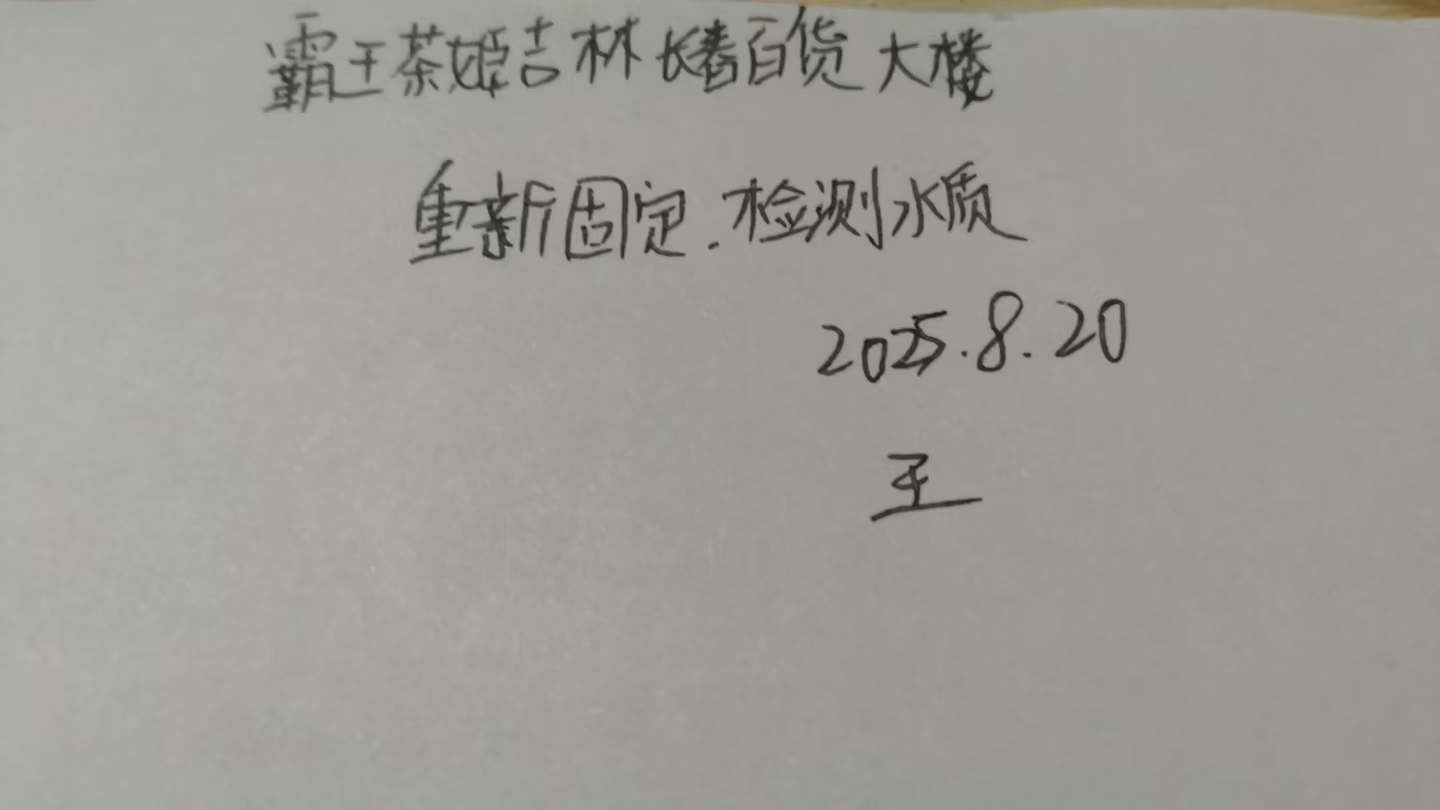 霸王茶姬吉林长春百货大楼
重新固定.检测水质
2025.8.20
王